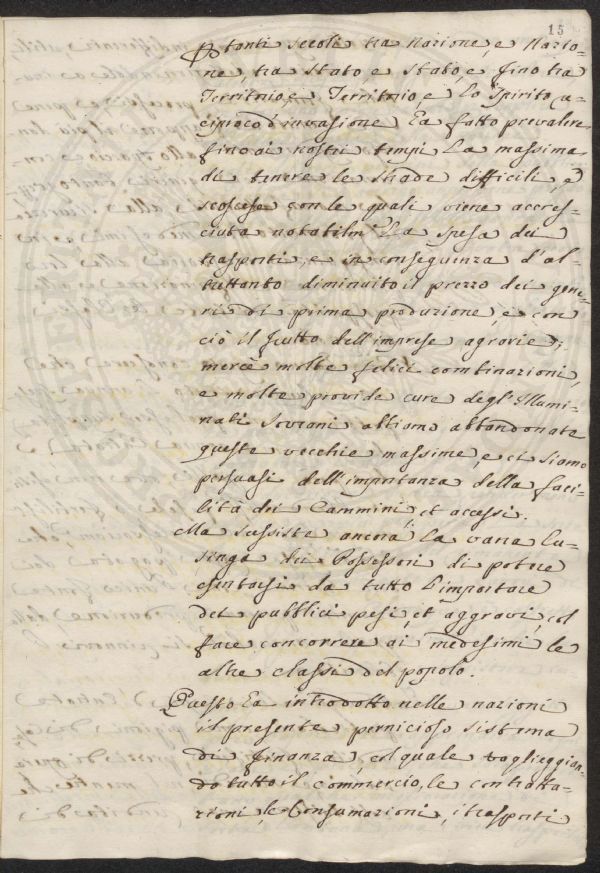 15
P tanti secoli tra Nazione, e Nazio-
ne, tra Stato e Stato, e fino tra
Territorio, e Territorio, e lo Spirito re-
ciproco d'invasione ha fatto prevalere
fino ai nostri tempi la massima
di tenere le strade difficili, e
scoscese con le quali viene accres-
ciuta notabilm la spesa dei
trasporti, e in conseguenza d'al-
trettanto diminuito il prezzo dei gene-
ri di prima produzione, e con
ciò il frutto dell'imprese agrarie;
mercè molte felici combinazioni,
e molte provide cure degl'Illumi-
nati Sovrani abbiamo abbandonate
queste vecchie massime, e ci siamo
persuasi dell'importanza della faci-
lità dei Cammini, et accessi.
Ma sussiste ancora la vana lu-
singa dei Possessori di potere
esentarsi da tutto l'importare
dei pubblici pesi, et aggravi, col
fare concorrere ai medesimi le
altre classi del popolo.
Questo ha introdotto nelle nazioni
il presente pernicioso sistema
di finanza, col quale taglieggian-
do tutto il commercio, le contratta-
zioni, le Consumazioni, i trasporti